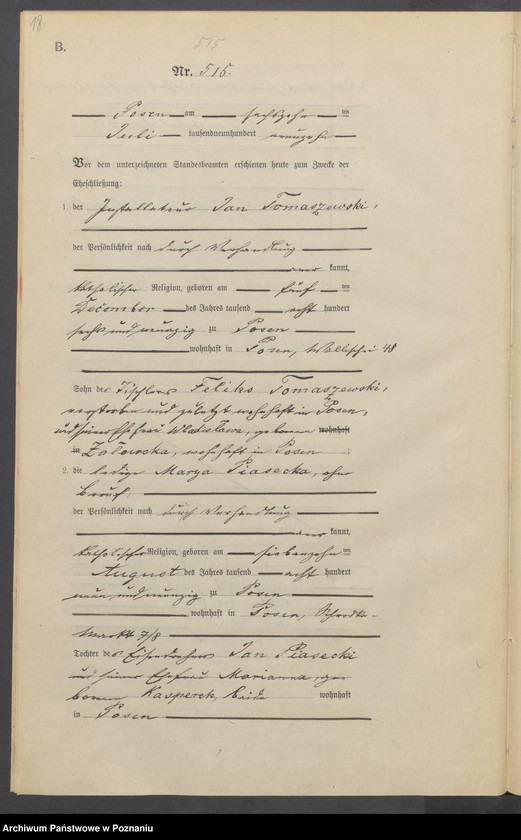 18
B.
515
Nr. 515.
Posen am sechszehn ten
Juli tausendneunhundert neunzehn
Vor dem unterzeichneten Standesbeamten erschienen heute zum Zwecke der
Eheschließung:
1. der Installateur Jan Tomaszewski,
der Persönlichkeit nach durch Verhandlung
aner kannt,
katholischer Religion, geboren am fünf ten
December des Jahres tausend acht hundert
sechs und neunzig zu Posen
wohnhaft in Posen, Wallischei 48
Sohn des Tischlers Feliks Tomaszewski,
verstorben und zuletzt wohnhaft in Posen,
und seiner Ehefrau Wladislawa, geborene wohnhaft
in wohnhaft in Posen ;
2. die ledige Marya Piasecka, ohne
Beruf,
der Persönlichkeit nach durch Verhandlung
aner kannt,
katholischer Religion, geboren am siebenzehn ten
August des Jahres tausend acht hundert
neun und neunzig zu Posen
wohnhaft in Posen, Schrodka-
Markt 7/8
Tochter des Eisendrehers Jan Piasecki
und seiner Ehefrau Marianna, ge-
borenen Kasperek, beide wohnhaft
in Posen
Archiwum Państwowe w Poznaniu